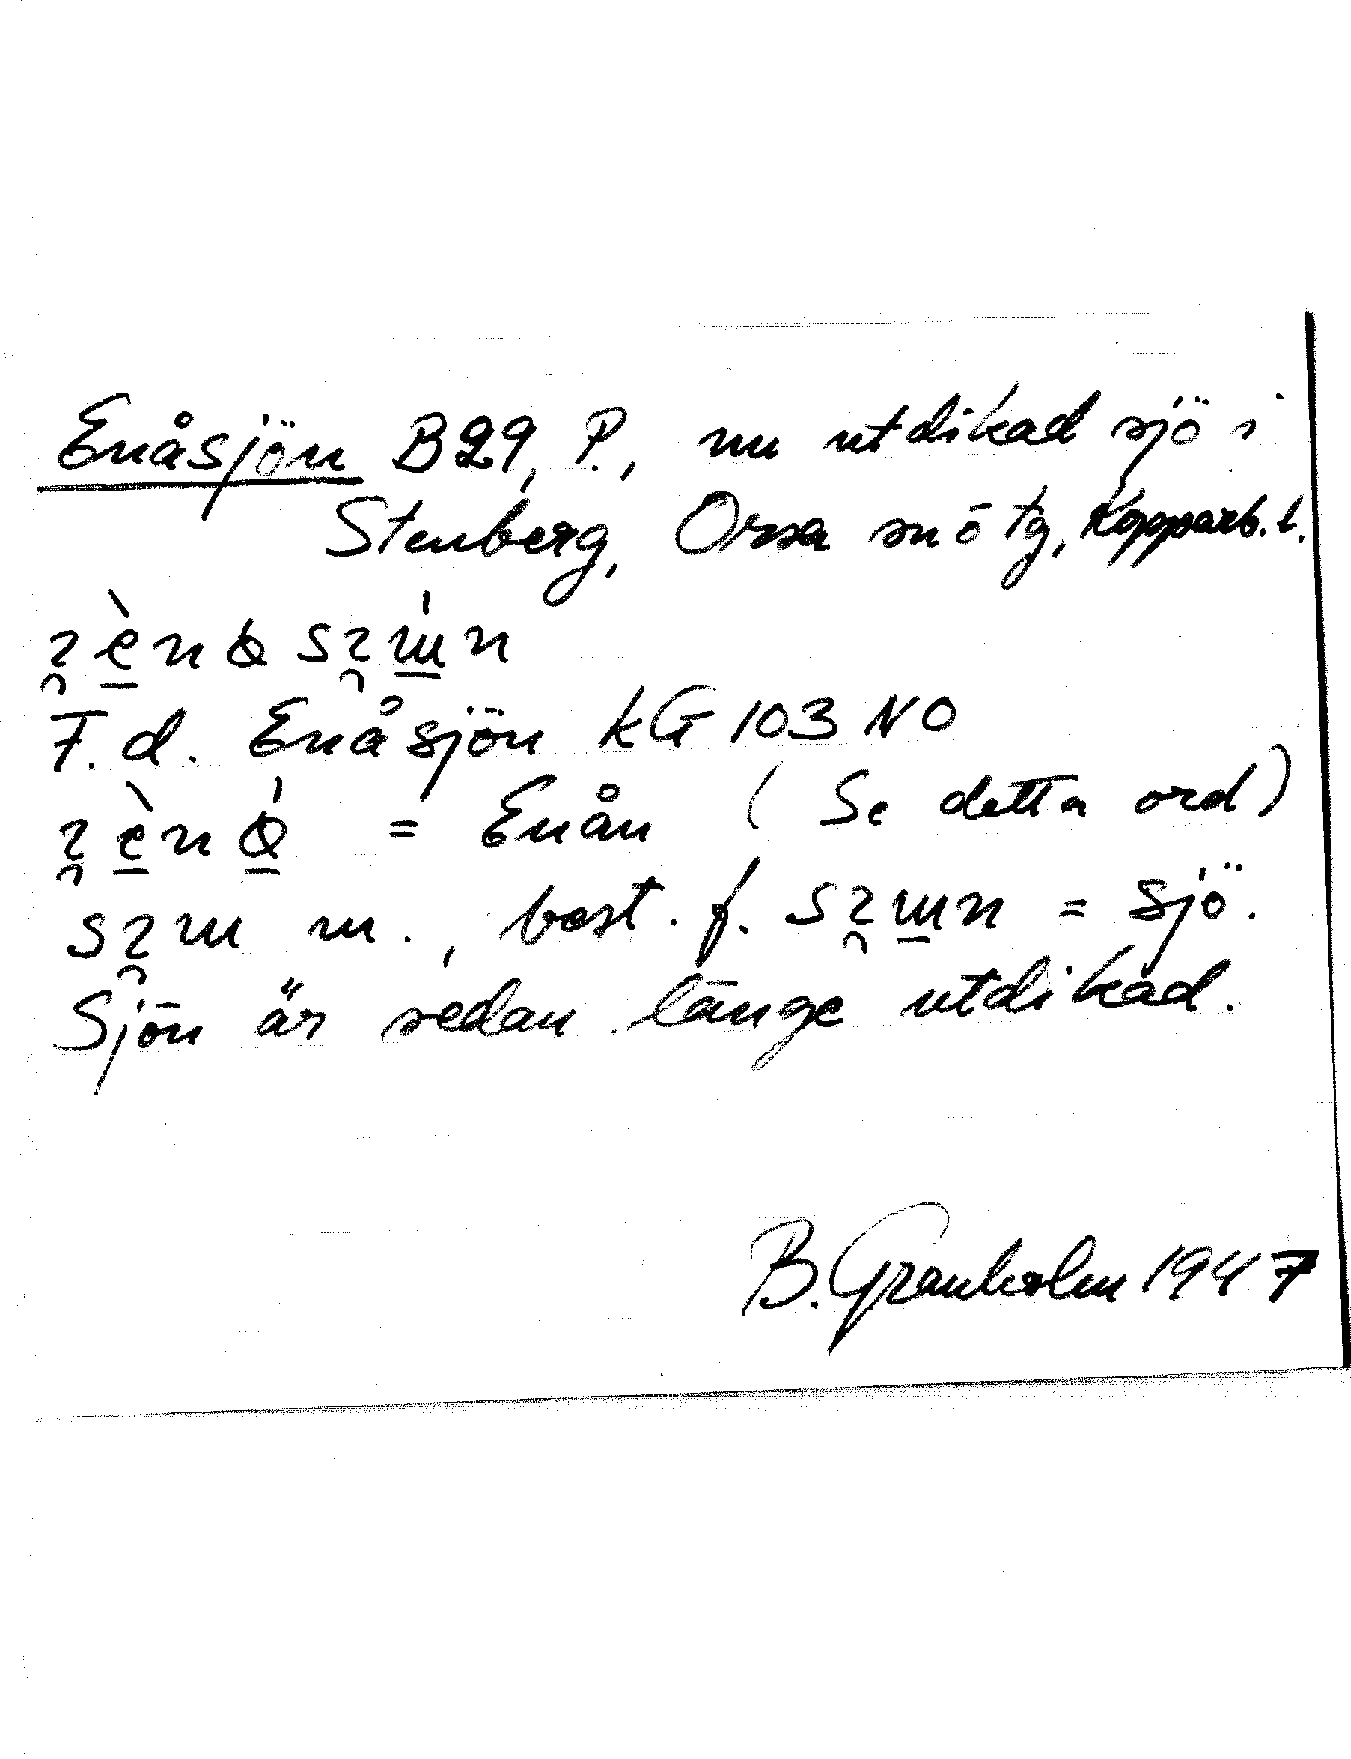 Enåsjön B29, P., nu utdikad sjö i
Stenberg, Orsa snötg, Kopparb. l.
F. d. Enåsjön KG 103 NO
= Enån (Se detta ord)
m., best. f. = sjö.
Sjön är sedan länge utdikad.
B. Granholm 1947